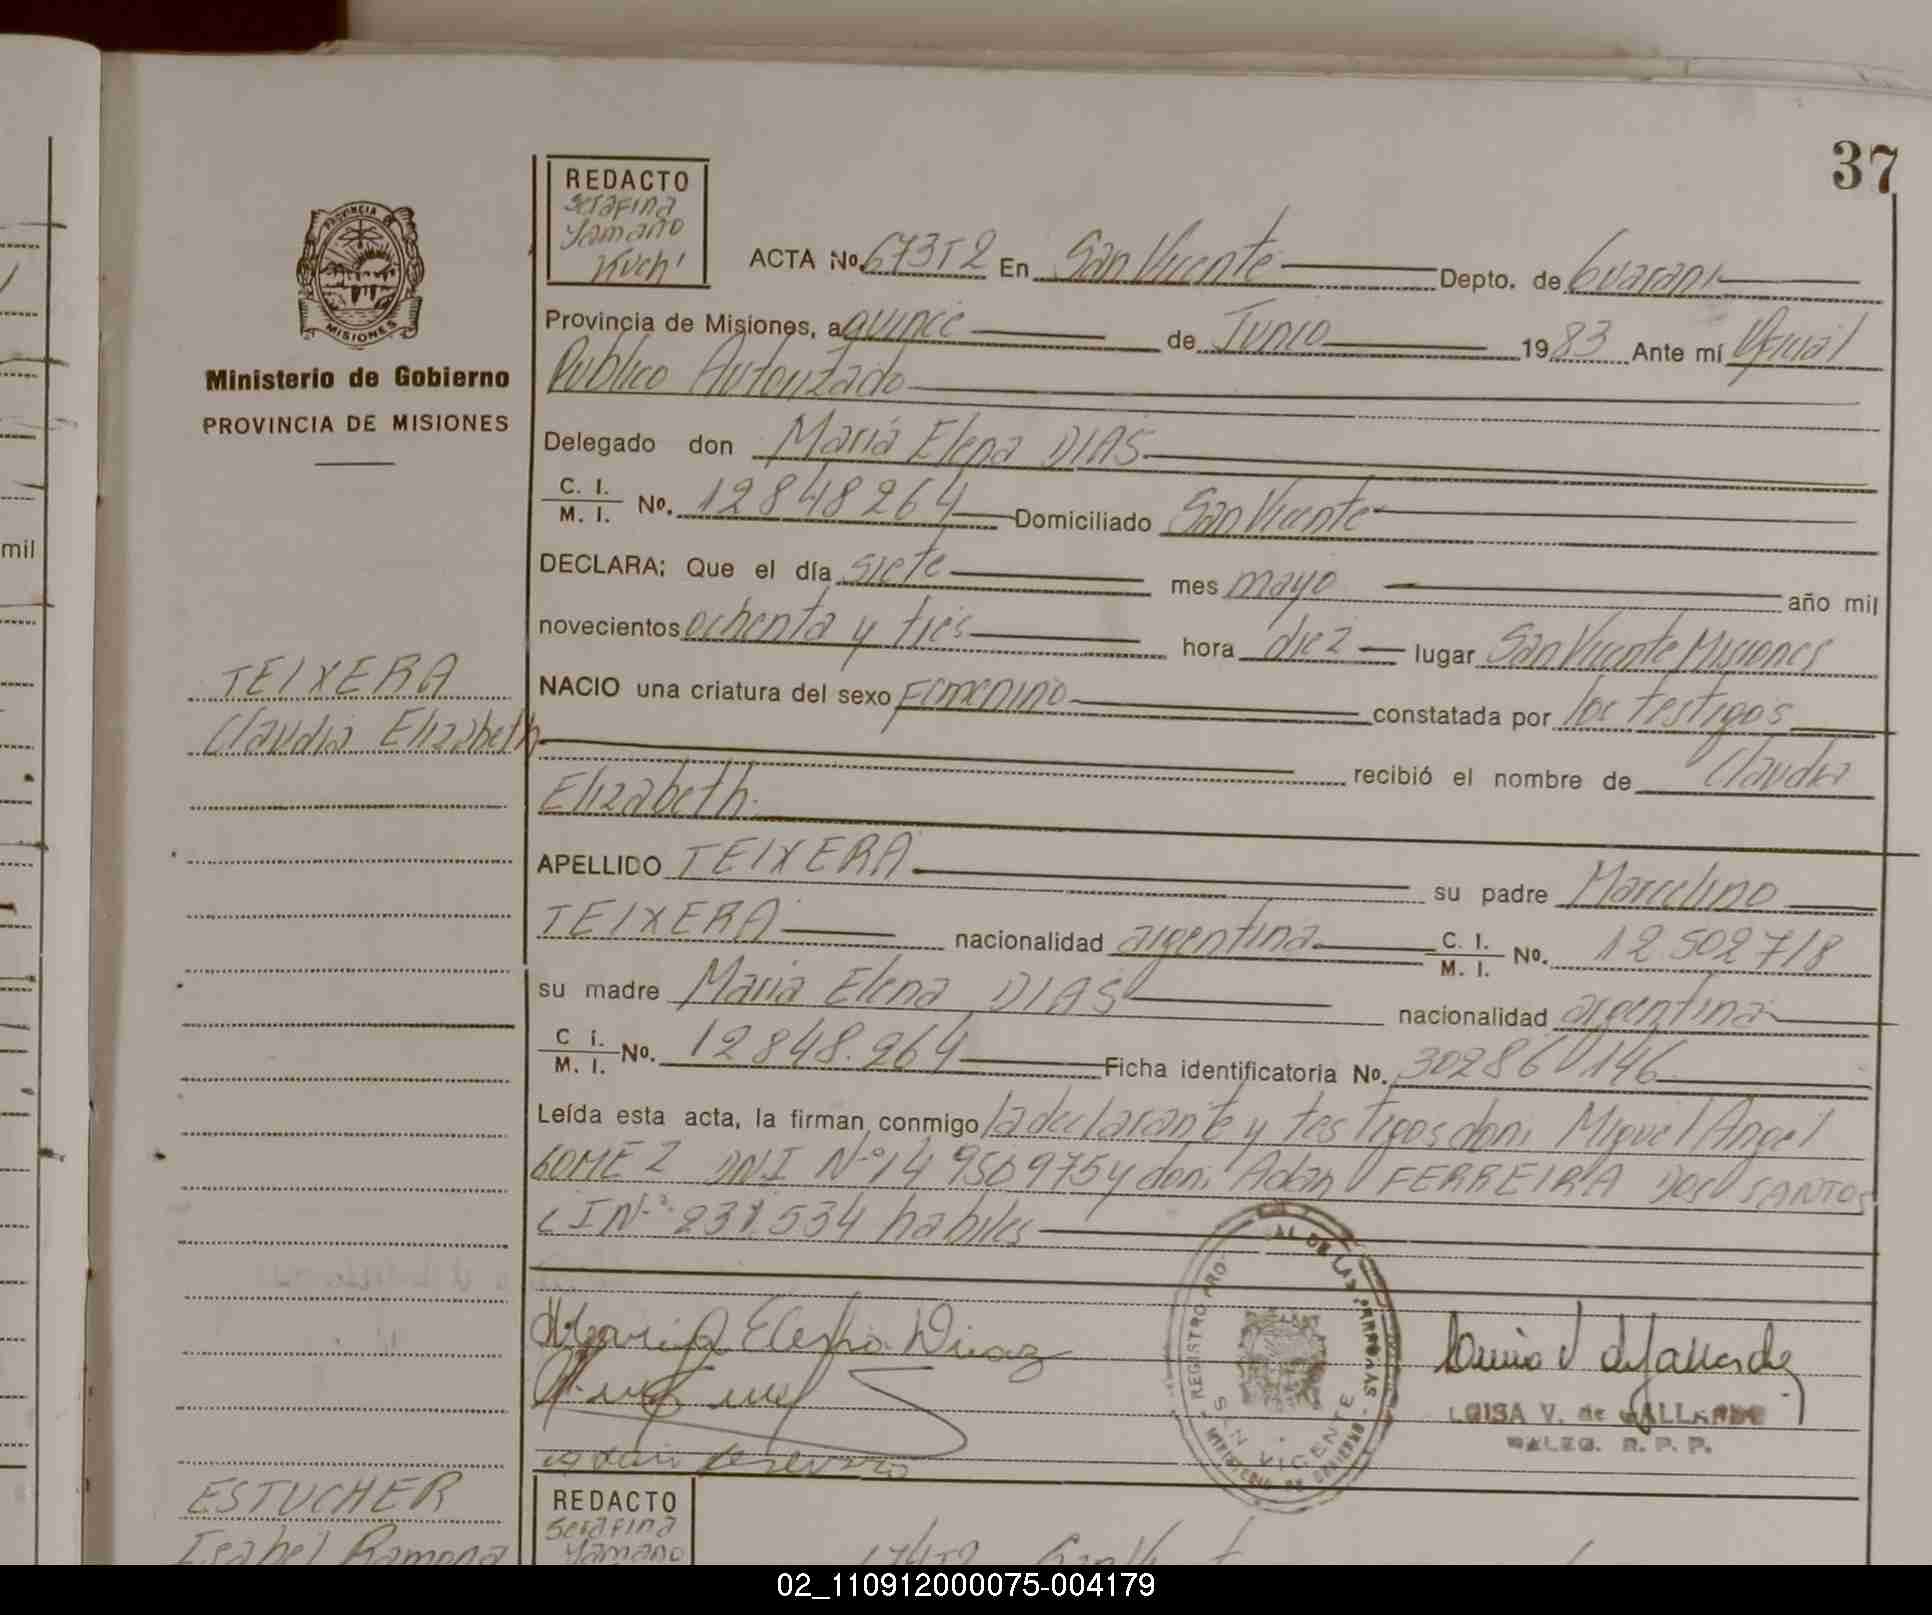 37
PROVINCIA DE
MISIONES
Ministerio de Gobierno
PROVINCIA DE MISIONES
REDACTO
Serafina
Yamaño
Kuchi
ACTA No. 673T2 En San Vicente Depto. de Guarani
Provincia de Misiones, a quince de Junio 1983 Ante mí Oficial
Publico Autorizado
Delegado don Maria Elena DIAS
C. I. / M. I. No. 12848264 Domiciliado San Vicente
DECLARA: Que el día siete mes mayo año mil
novecientos ochenta y tres hora diez lugar San Vicente Misiones
NACIO una criatura del sexo Femenino constatada por los testigos
recibió el nombre de Claudia
Elizabeth.
APELLIDO TEIXERA su padre Marcelino
TEIXERA nacionalidad argentina C. I. / M. I. No. 12.502718
su madre Maria Elena DIAS nacionalidad argentina
C I. / M. I. No. 12848.264 Ficha identificatoria No. 302860146
Leída esta acta, la firman conmigo la declarante y testigos don: Miguel Angel
GOMEZ DNI Nº 14 950975 y don: Adan FERREIRA DOS SANTOS
CI Nº 231.534 habiles
TEIXERA
Claudia Elizabeth
Maria Elena Diaz
REGISTRO PRO AL DE LAS PERSONAS
SAN VICENTE
MINISTERIO DE GOBIERNO
LUISA V. de GALLARDO
DELEG. R. P. P.
ESTUCHER
Isabel Ramona
REDACTO
Serafina
Yamaño
674T2 San Vicente
mil
02_110912000075-004179